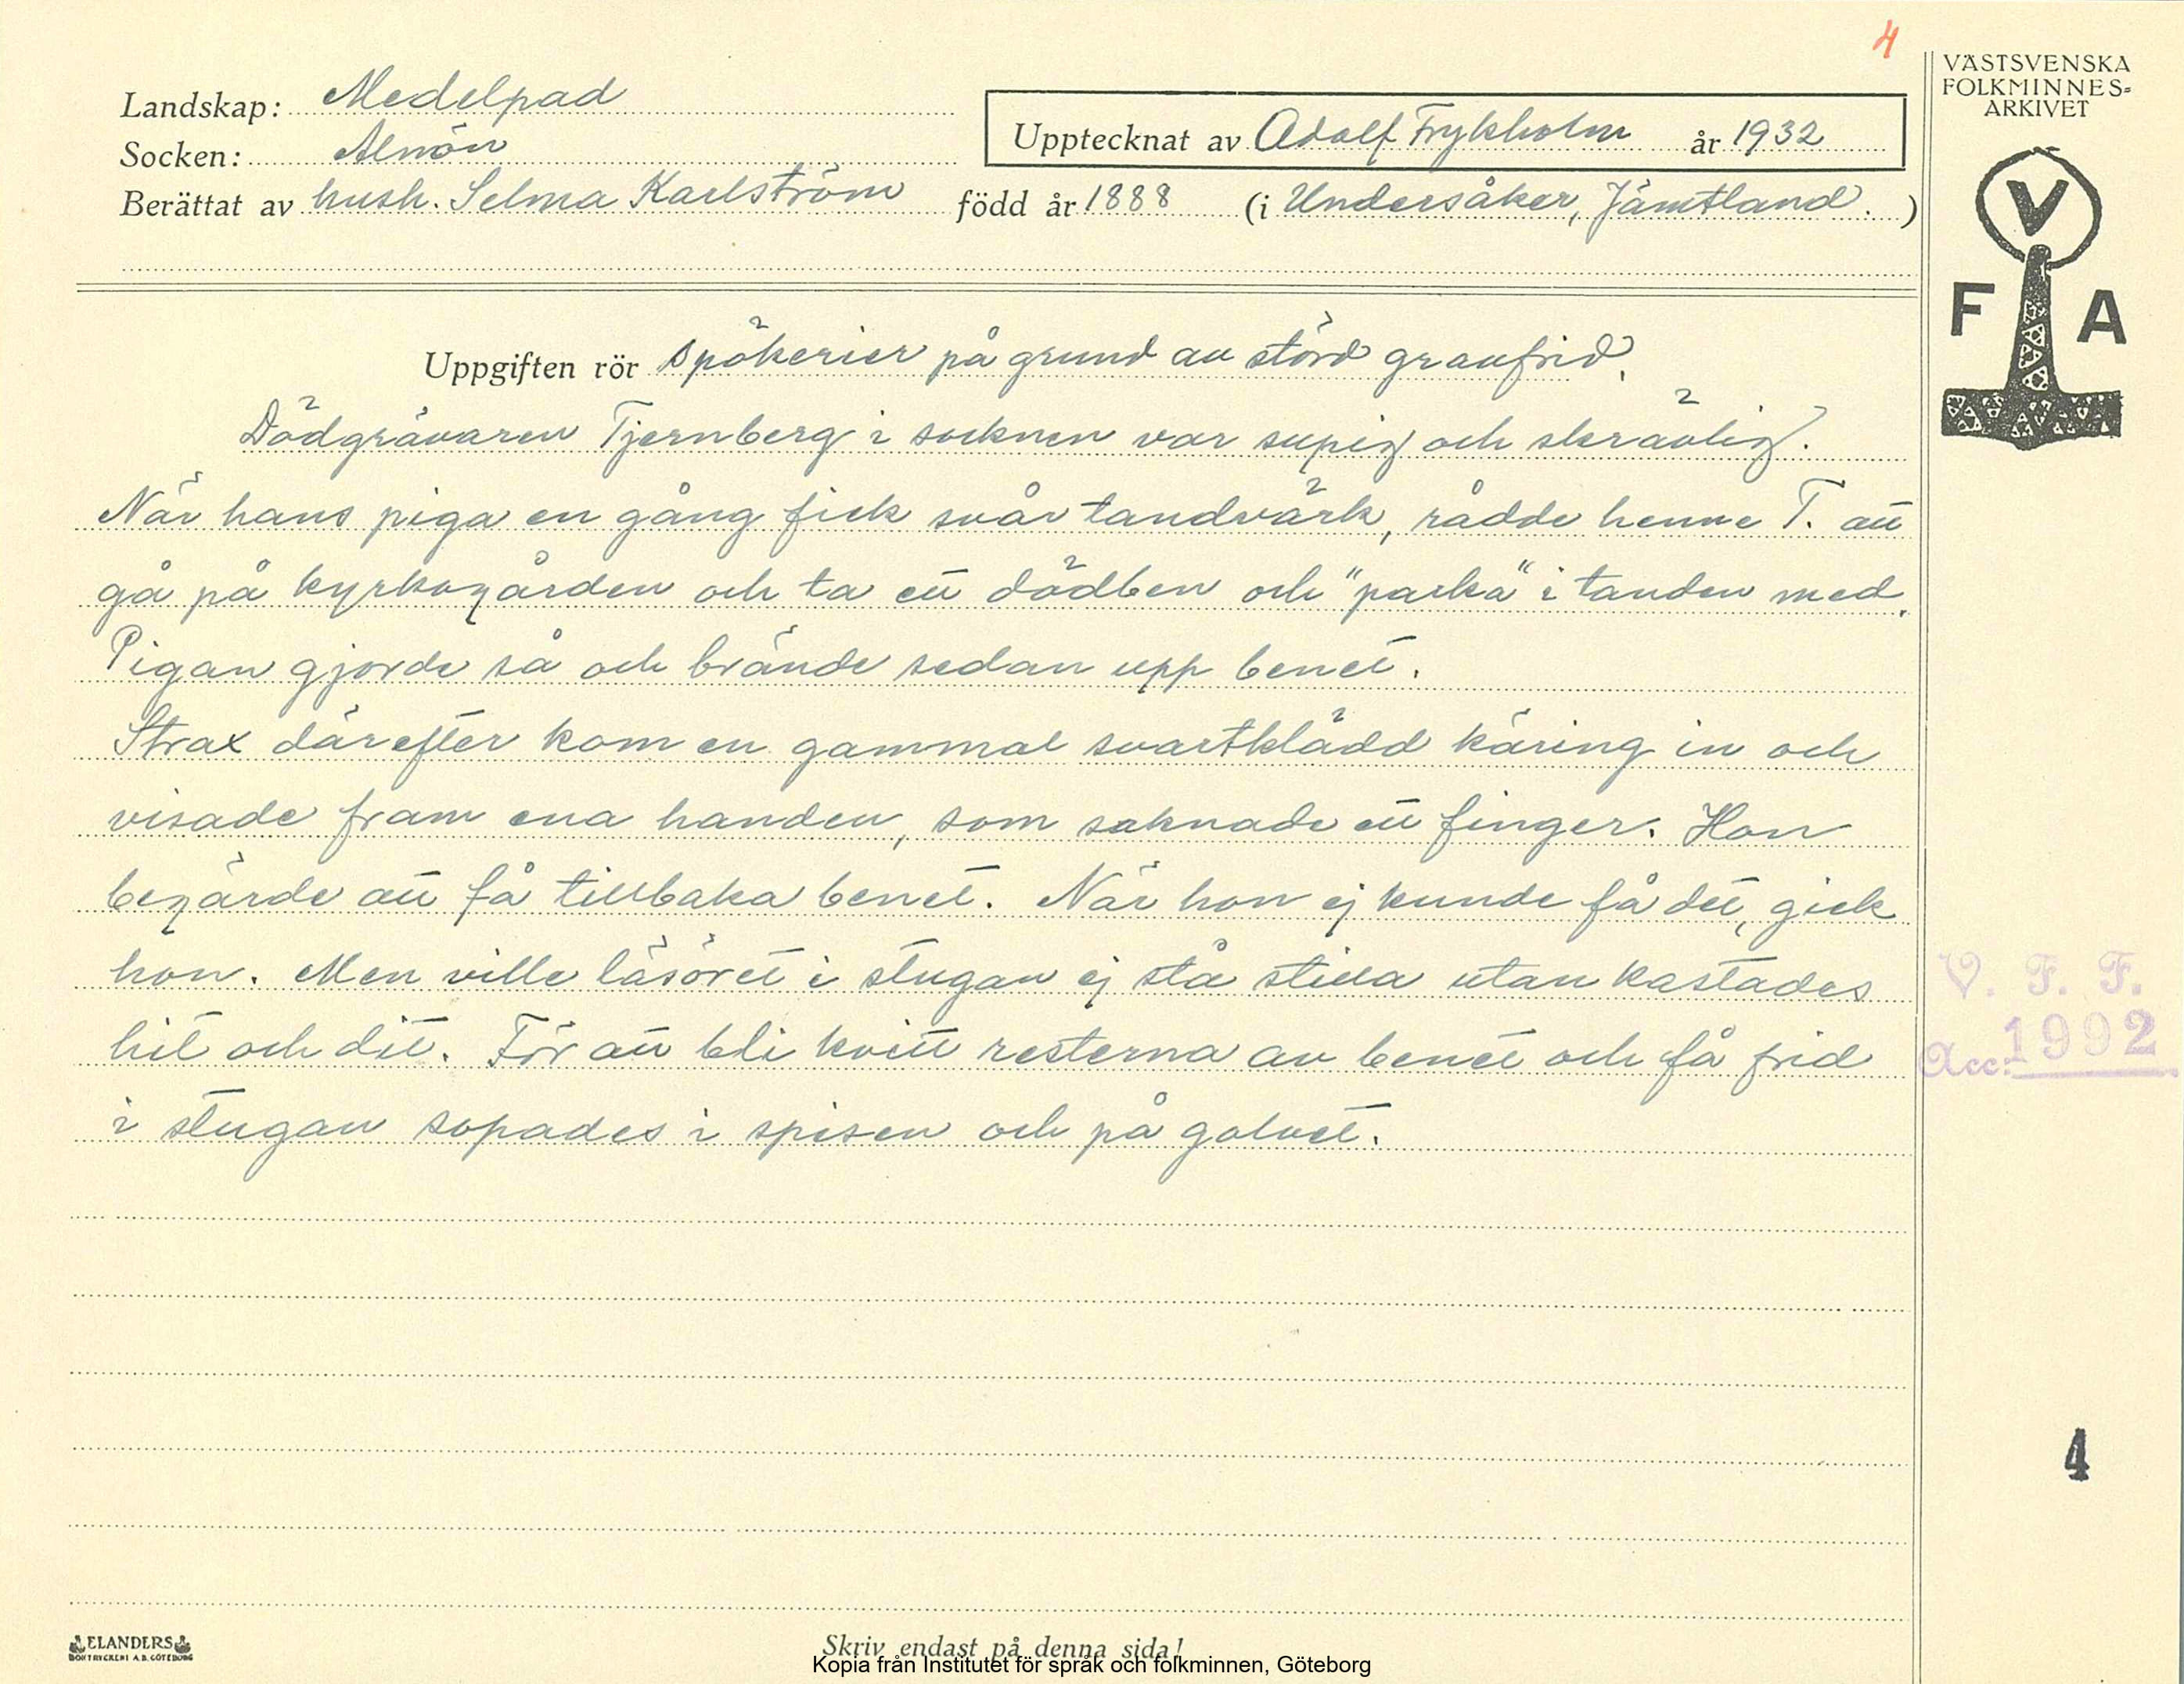 4
VÄSTSVENSKA
FOLKMINNES=
ARKIVET
Landskap: Medelpad
Upptecknat av Adolf Frykholm år 1932
Socken: Alnön
Berättat av hush. Selma Karlström född år 1888 (i Undersåker, Jämtland.)
V
F A
Uppgiften rör spökerier på grund av störd gravfrid.
Dödgrävaren Tjernberg i socknen var supig och skrävlig.
När hans piga en gång fick svår tandvärk, rådde henne T. att
gå på kyrkogården och ta ett dödben och "parka" i tanden med.
Pigan gjorde så och brände sedan upp benet.
Strax därefter kom en gammal svartklädd käring in och
visade fram ena handen, som saknade ett finger. Hon
begärde att få tillbaka benet. När hon ej kunde få det, gick
hon. Men ville lösöret i stugan ej stå stilla utan kastades
hit och dit. För att bli kvitt resterna av benet och få frid
i stugan sopades i spisen och på golvet.
V. F. F.
Acc: 1992
4
ELANDERS
BOKTRYCKERI A.B. GÖTEBORG
Skriv endast på denna sida!
Kopia från Institutet för språk och folkminnen, Göteborg